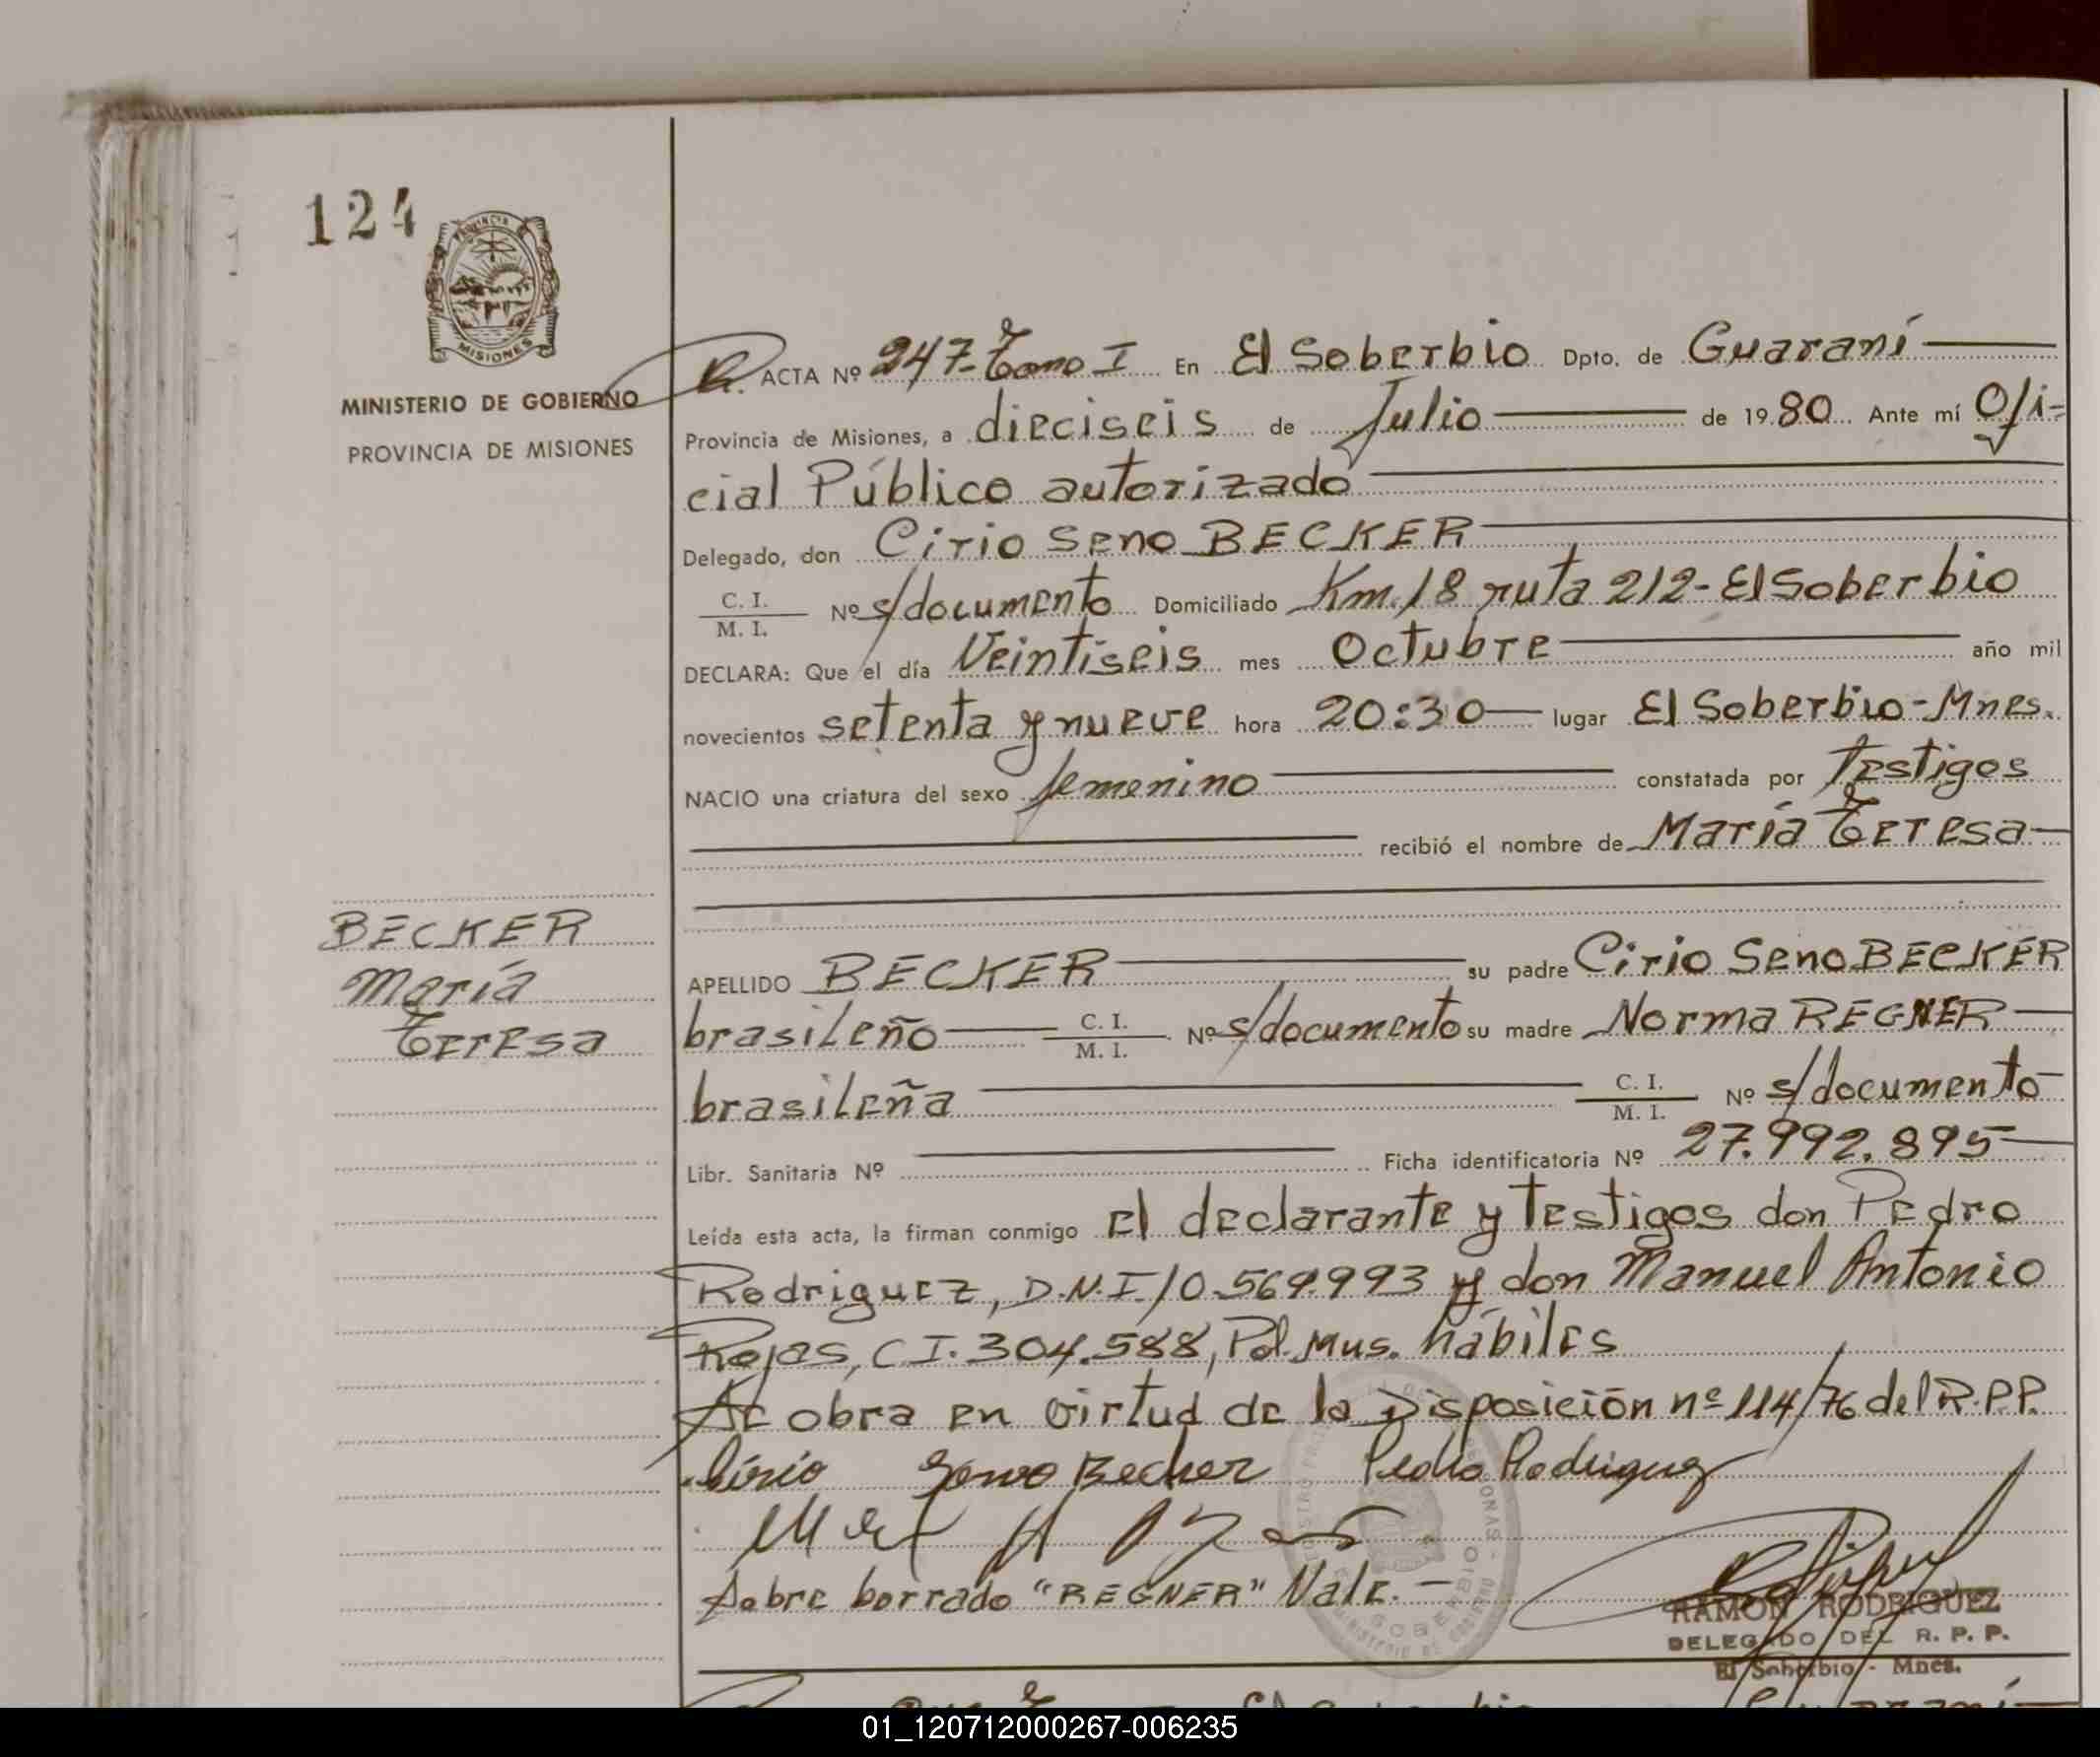 124
PROVINCIA
MISIONES
MINISTERIO DE GOBIERNO
PROVINCIA DE MISIONES
ACTA Nº 247-Tomo I En El Soberbio Dpto. de Guaraní
Provincia de Misiones, a dieciseis de Julio de 1980 Ante mí Ofi-
cial Público autorizado
Delegado, don Cirio Seno BECKER
C. I.
M. I. Nº s/documento Domiciliado Km. 18 ruta 212-El Soberbio
DECLARA: Que el día Veintiseis mes Octubre año mil
novecientos setenta y nueve hora 20:30 lugar El Soberbio-Mnes.
NACIO una criatura del sexo femenino constatada por Testigos
recibió el nombre de María Teresa
BECKER
María
Teresa
APELLIDO BECKER su padre Cirio Seno BECKER
brasileño C. I.
M. I. Nº s/documento su madre Norma REGNER
brasileña C. I.
M. I. Nº s/documento
Libr. Sanitaria Nº Ficha identificatoria Nº 27.992.895
Leída esta acta, la firman conmigo el declarante y testigos don Pedro
Rodriguez, D.N.I. 10.569.993 y don Manuel Antonio
Rojas, C I. 304.588, Pol. Mus. hábiles
Se obra en virtud de la Disposición nº 114/76 del R.P.P.
Cirio Seno Becker Pedro Rodriguez
Sobre borrado "REGNER" Vale.-
RAMON RODRIGUEZ
DELEGADO DEL R. P. P.
El Soberbio - Mnes.
01_120712000267-006235